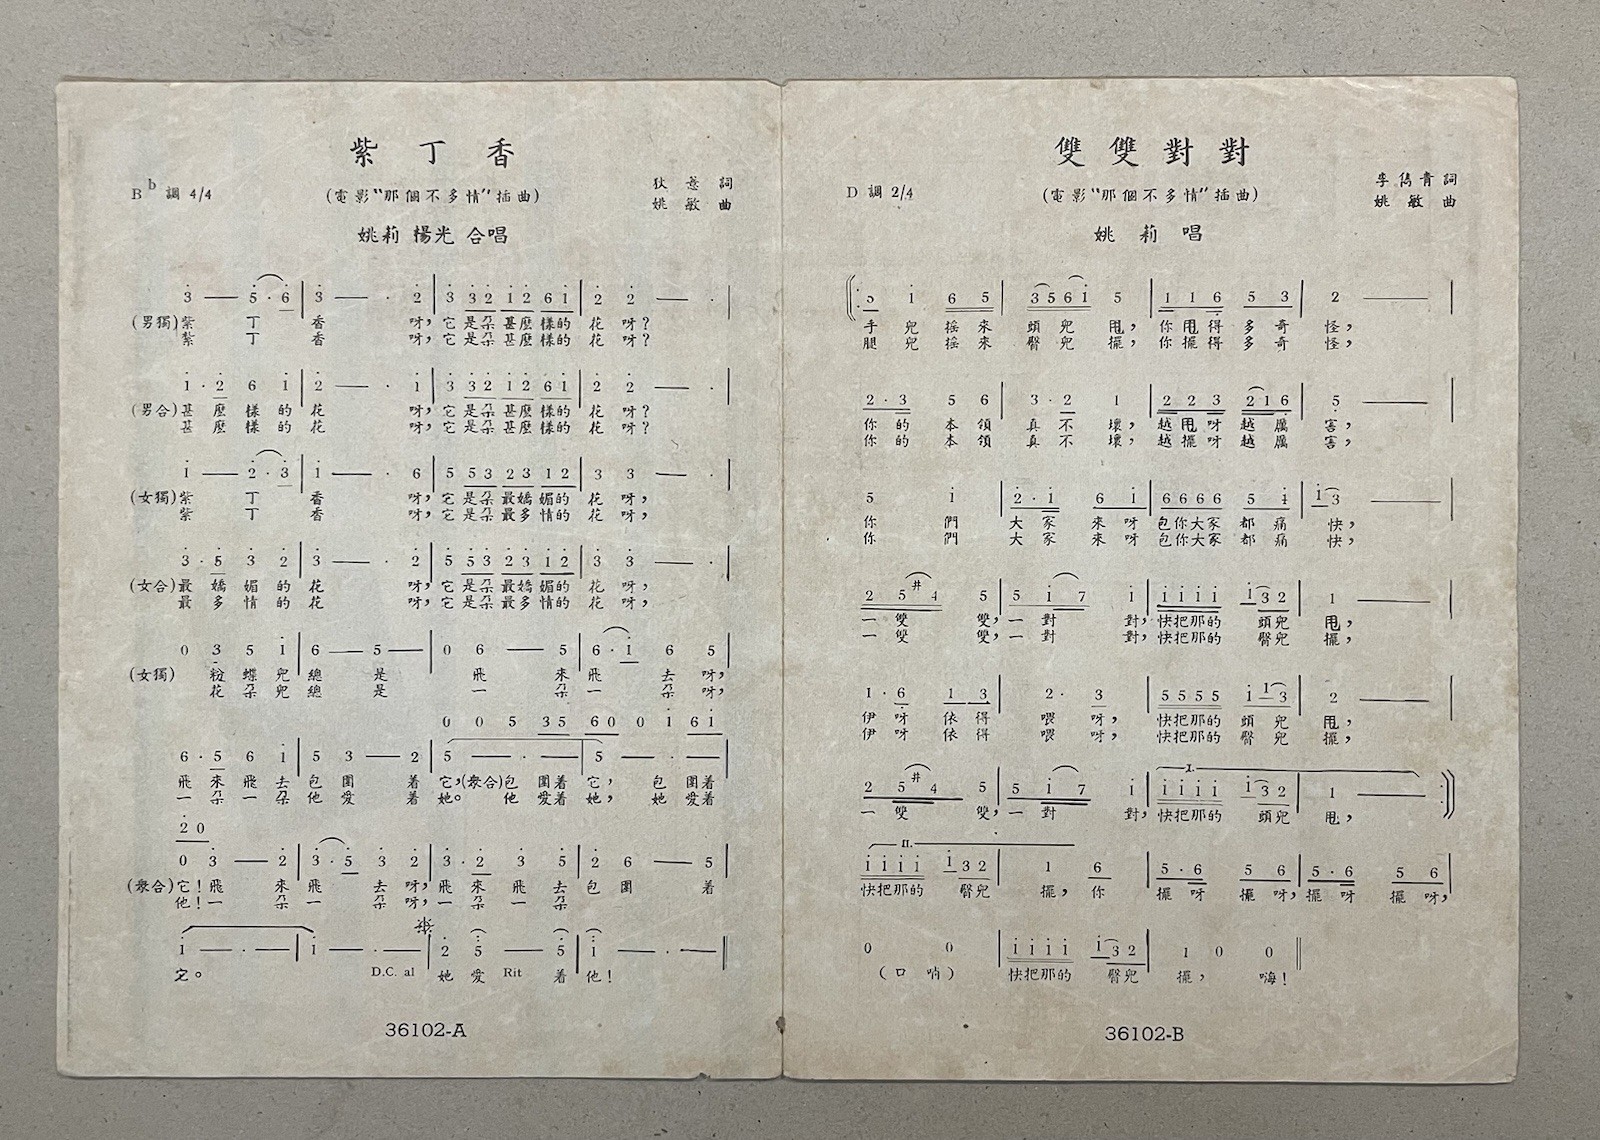 紫丁香
B♭調 4/4
(電影“那個不多情”插曲)
狄薏詞
姚敏曲
姚莉 楊光 合唱
3̇ — 5̇ · 6̇ | 3̇ — · 2̇ | 3̇ 3̇ 2̇ 1̇ 2̇ 6 1̇ | 2̇ 2̇ — · |
(男獨)紫丁香呀,它是朵甚麼樣的花呀?
紫丁香呀,它是朵甚麼樣的花呀?
1̇ · 2̇ 6 1̇ | 2̇ — · 1̇ | 3̇ 3̇ 2̇ 1̇ 2̇ 6 1̇ | 2̇ 2̇ — · |
(男合)甚麼樣的花呀,它是朵甚麼樣的花呀?
甚麼樣的花呀,它是朵甚麼樣的花呀?
1̇ — 2̇ · 3̇ | 1̇ — · 6 | 5 5 3̇ 2̇ 3̇ 1̇ 2̇ | 3̇ 3̇ — · |
(女獨)紫丁香呀,它是朵最嬌媚的花呀,
紫丁香呀,它是朵最多情的花呀,
3̇ · 5̇ 3̇ 2̇ | 3̇ — · 2̇ | 5̇ 5̇ 3̇ 2̇ 3̇ 1̇ 2̇ | 3̇ 3̇ — · |
(女合)最嬌媚的花呀,它是朵最嬌媚的花呀,
最多情的花呀,它是朵最多情的花呀,
0 3 5 1̇ | 6 — 5 — | 0 6 — 5 | 6 · 1̇ 6 5 |
(女獨)粉蝶兒總是飛來飛去呀,
花朵兒總是一朵一朵呀,
0 0 5 3 5 6 0 0 1̇ 6 1̇
6 · 5 6 1̇ | 5 3 — 2 | 5 — · — | 5 — · — |
飛來飛去包圍着它,(衆合)包圍着它,包圍着
一朵一朵他愛着她。他愛着她,她愛着
2̇ 0
0 3̇ — 2̇ | 3̇ · 5̇ 3̇ 2̇ | 3̇ · 2̇ 3̇ 5̇ | 2̇ 6 — 5 |
(衆合)它!飛來飛去呀,飛來飛去包圍着
他!一朵一朵呀,一朵一朵
1̇ — · — | 1̇ — · — | 2̇ 5̇ — 5̇ | 1̇ — · — ‖
它。 D.C. al 她愛 Rit 着他!
36102-A
雙雙對對
D 調 2/4
(電影“那個不多情”插曲)
李雋青詞
姚敏曲
姚莉唱
5 1̇ 6 5 | 3 5 6 1̇ 5 | 1 1 6̣ 5 3 | 2 — |
手兒搖來頭兒甩,你甩得多奇怪,
腿兒搖來臀兒擺,你擺得多奇怪,
2 · 3 5 6 | 3 · 2 1 | 2 2 3 2 1 6̣ | 5̣ — |
你的本領真不壞,越甩呀越厲害,
你的本領真不壞,越擺呀越厲害,
5 1̇ | 2̇ · 1̇ 6 1̇ | 6 6 6 6 5 4 | 1̇ 3 — |
你們大家來呀包你大家都痛快,
你們大家來呀包你大家都痛快,
2 5 #4 5 | 5 1̇ 7 1̇ | 1̇ 1̇ 1̇ 1̇ 1̇ 3 2 | 1 — |
一雙雙,一對對,快把那的頭兒甩,
一雙雙,一對對,快把那的臀兒擺,
1 · 6̣ 1 3 | 2 · 3 | 5 5 5 5 1̇ 1̇ 3 | 2 — |
伊呀依得喂呀,快把那的頭兒甩,
伊呀依得喂呀,快把那的臀兒擺,
I.
2 5 #4 5 | 5 1̇ 7 1̇ | 1̇ 1̇ 1̇ 1̇ 1̇ 3 2 | 1 — :‖
一雙雙,一對對,快把那的頭兒甩,
II.
1̇ 1̇ 1̇ 1̇ 1̇ 3 2 | 1 6 | 5 · 6 5 6 | 5 · 6 5 6 |
快把那的臀兒擺,你擺呀擺呀,擺呀擺呀,
0 0 | 1̇ 1̇ 1̇ 1̇ 1̇ 3 2 | 1 0 0 ‖
(口哨)快把那的臀兒擺,嗨!
36102-B